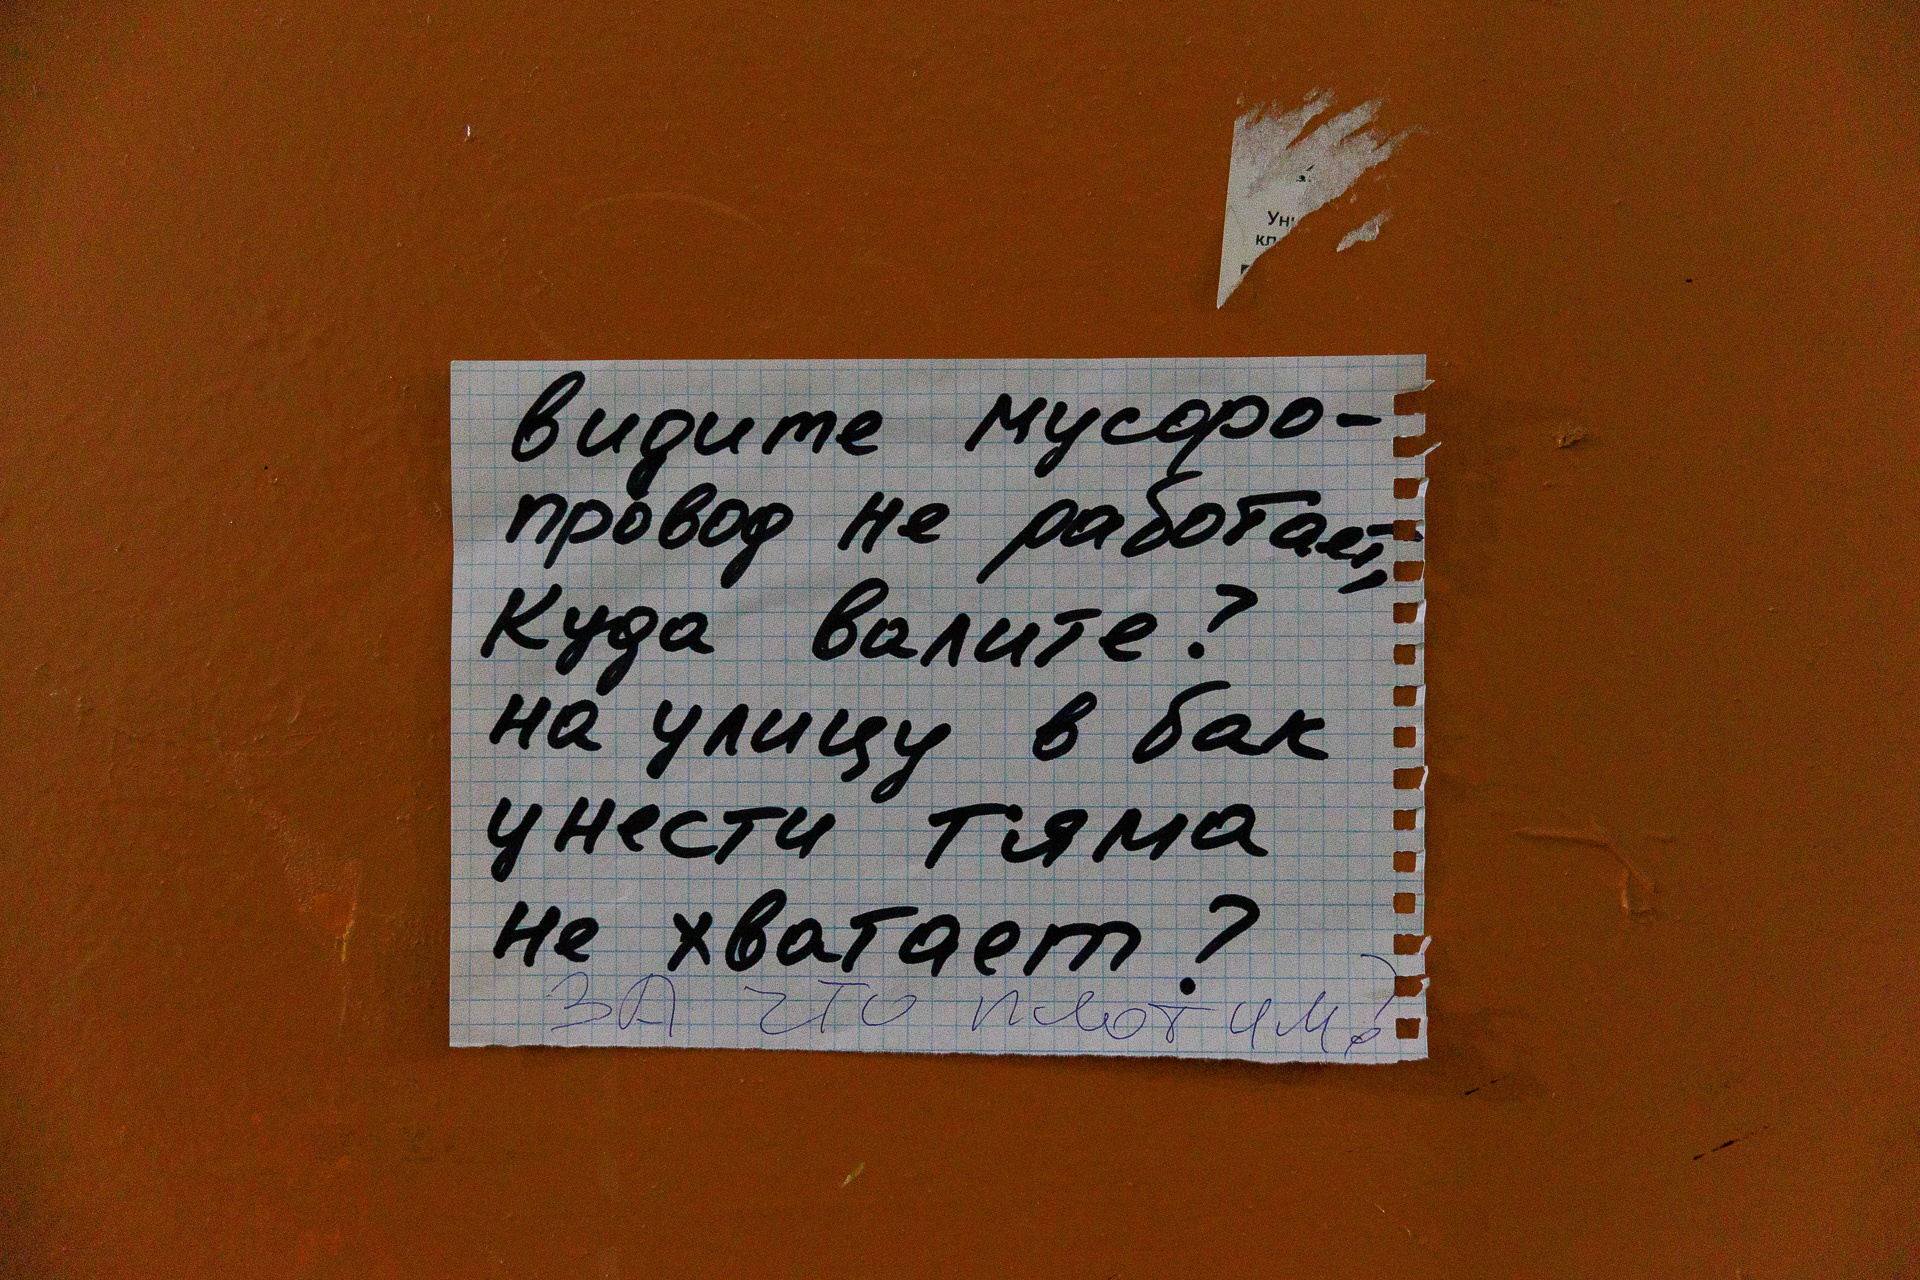 Ун
кл
видите мусоро-
провод не работает,
Куда валите?
на улицу в бак
унести тяма
не хватает?
ЗА что плотим?